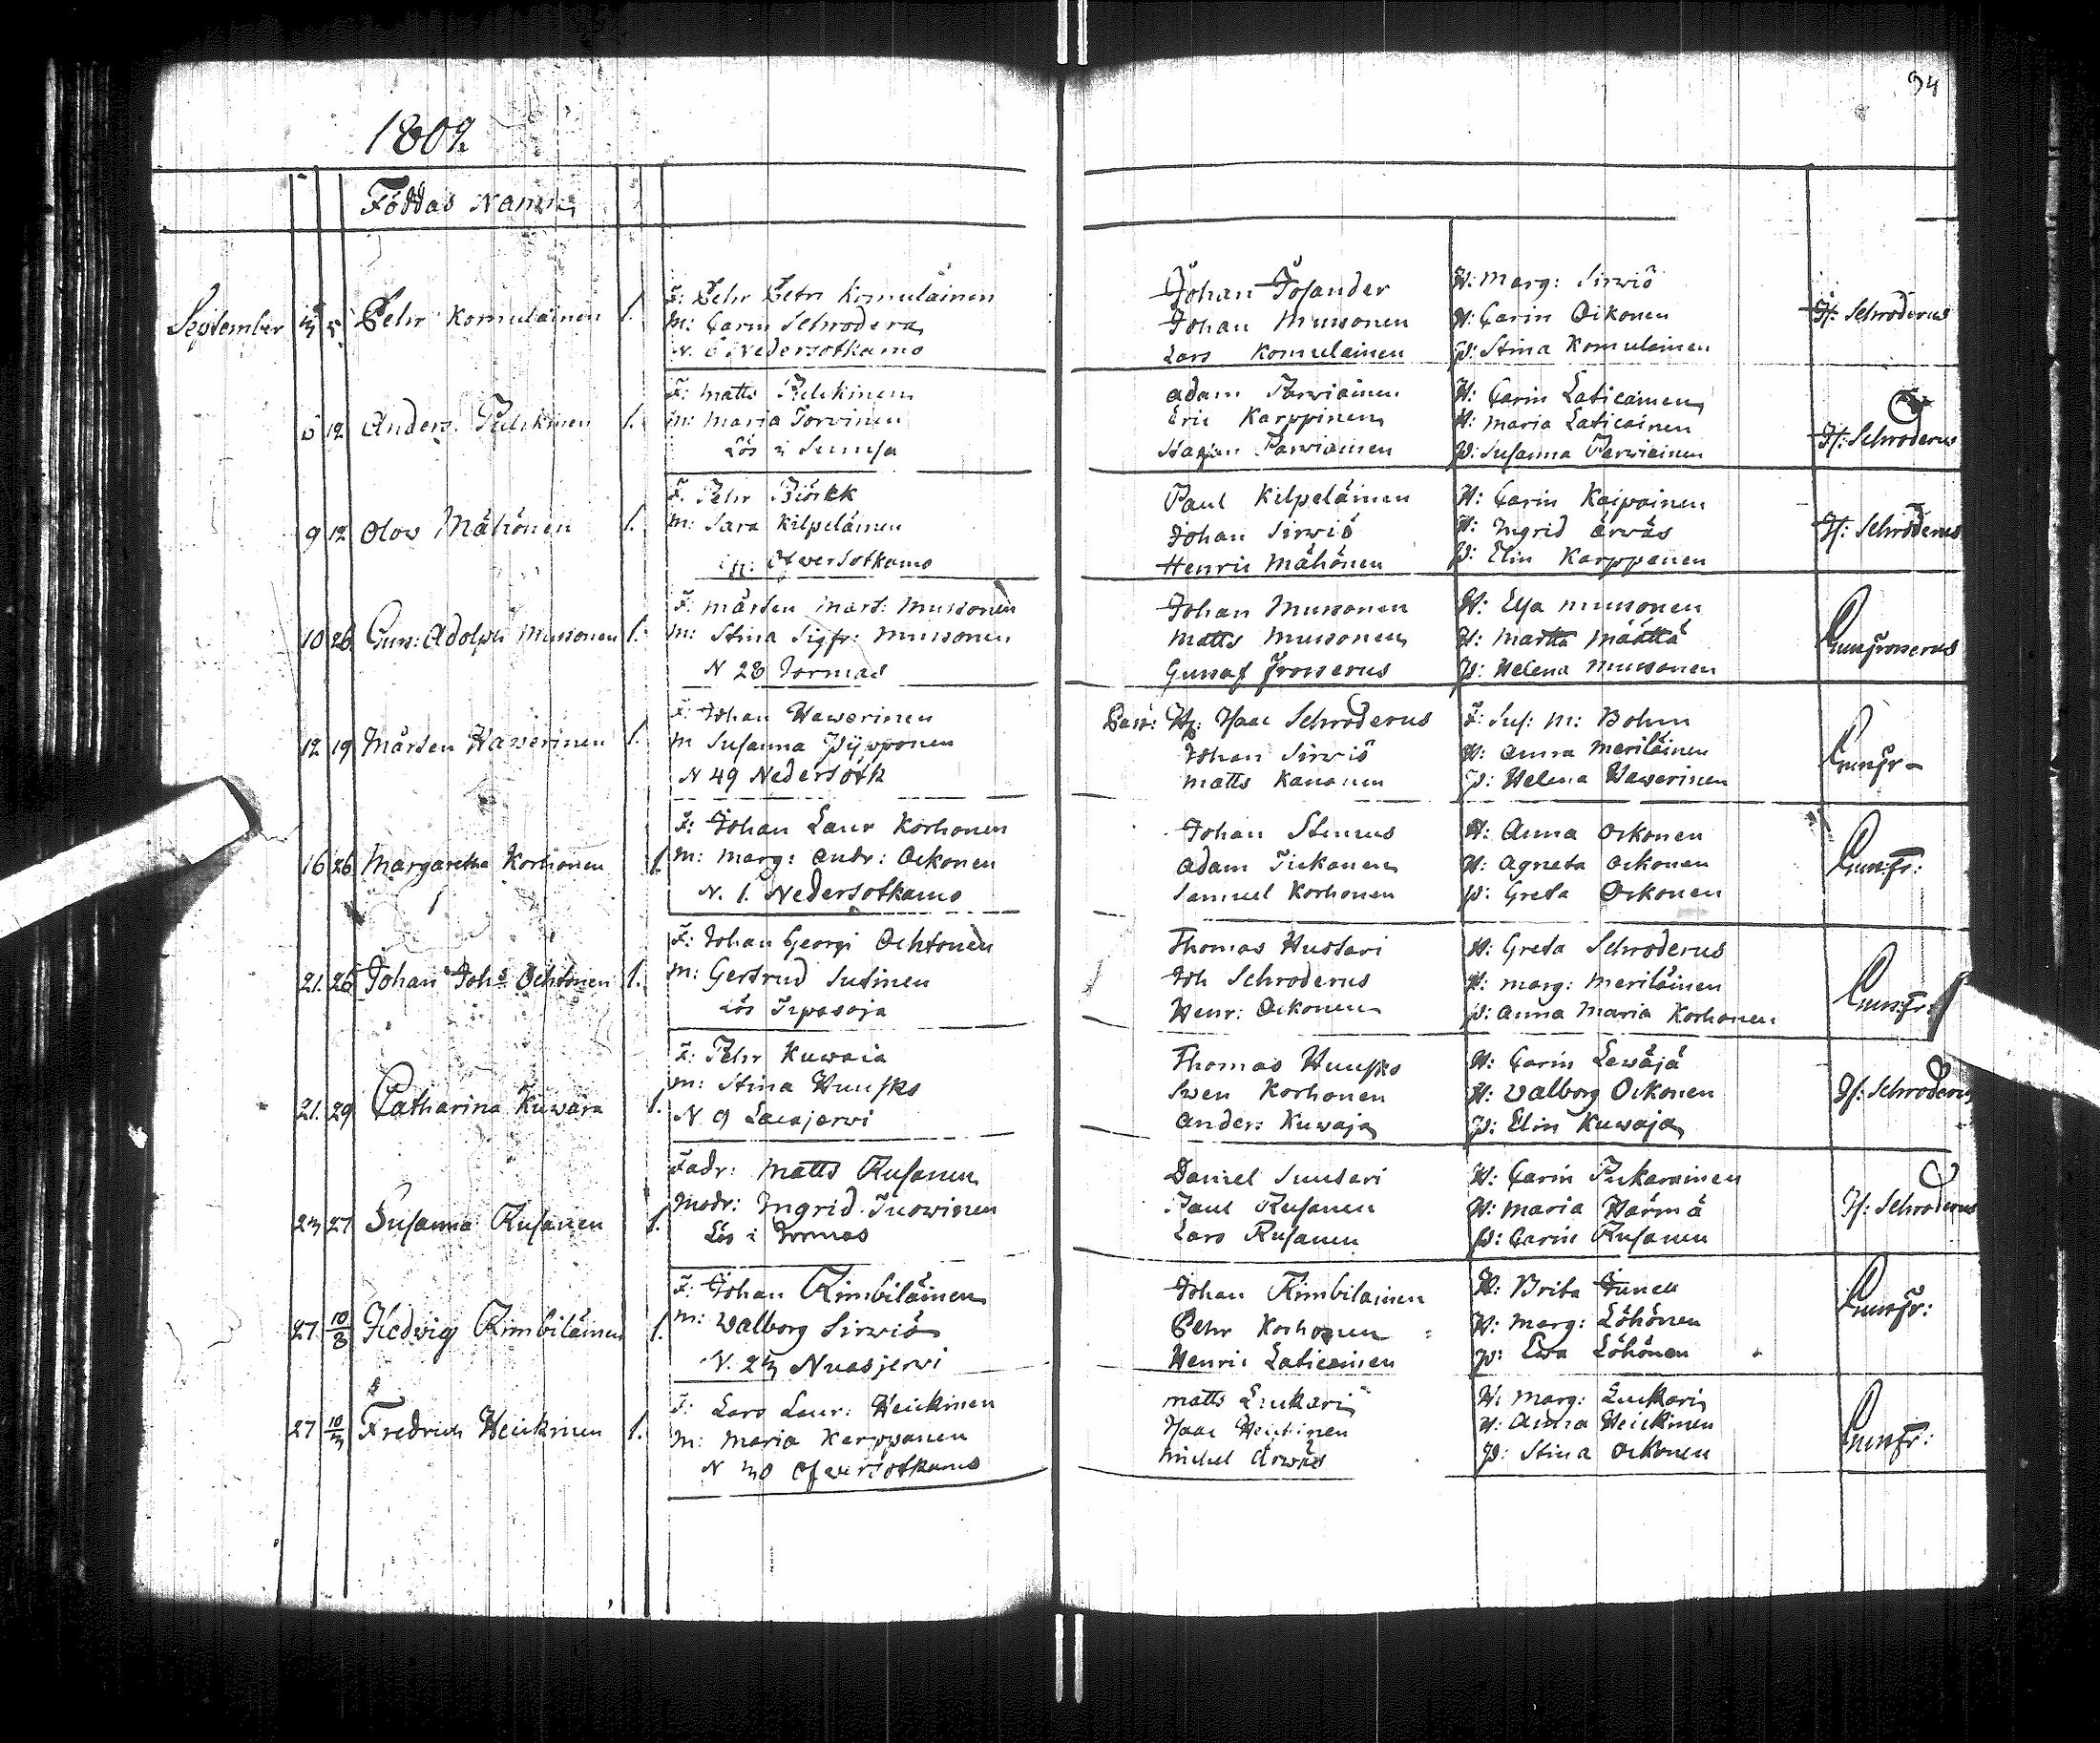 94
1809.
Föddas Namn
September 3 5 Pehr Komulainen 1.
F: Pehr Petri Komuläinen
M: Carin Schrodera
N. 6 Nedersotkamo
Johan Josander
Johan Mussonen
Lars Komulainen
H: Marg: Sirwiö
H: Carin Oikonen
P: Stina Komulainen
If: Schroderus
6 12 Anders Pulckinen 1.
F: Matts Pulckinen
M: Maria Torvinen
Lös i Sumsa
Adam Parviainen
Eric Karppinen
Hagan Parviainen
H: Carin Laticainen
H: Maria Laticainen
P: Susanna Parwiainen
If: Schroderus
9 12 Olov Mähönen 1.
F. Pehr Biörkk
M: Sara Kilpeläinen
Ofwersotkamo
Paul Kilpeläinen
Johan Sirwiö
Henric Mähönen
H: Carin Kaipainen
H: Ingrid Ärwäs
P: Elin Karppanen
If: Schroderus
10 26 Gust: Adolph Mussonen 1.
F: Mårten Mart: Mussonen
M: Stina Sigfr: Mussonen
N 28 Jormas
Johan Mussonen
Matts Mussonen
Gustaf Froserus
H: Elsa Mussonen
H: Martta Määttä
P: Helena Mussonen
12 19 Mårten Hawerinen 1.
F: Johan Hawerinen
M Susanna Pypponen
N 49 Nedersotk
H: Isaac Schroderus
Johan Sirwiö
Matts Kananen
F: Sus: M: Bohm
H: Anna Meriläinen
P: Helena Hawerinen
16 26 Margaretha Korhonen 1.
F: Johan Laur Korhonen
M: Marg: Andr: Ockonen
N. 1. Nedersotkamo
Johan Stenius
Adam Tickanen
Samuel Korhonen
H: Anna Ockonen
H: Agneta Ockonen
P: Greta Ockonen
21. 26 Johan Johs Ochtonen 1.
F: Johan Georgi Ochtonen
M: Gertrud Sutinen
Lös Tipasoja
Thomas Hussari
Joh Schroderus
Henr: Ockonen
H: Greta Schroderus
H: Marg: Meriläinen
P: Anna Maria Korhonen
21. 29 Catharina Kuwaja 1.
F: Pehr Kuwaja
M: Stina Huusko
N 9 Lacajerwi
Thomas Huusko
Swen Korhonen
Anders Kuwaja
H: Carin Lewäjä
H: Walborg Ockonen
P: Elin Kuwaja
If: Schroderus
23 27 Susanna Rusanen 1.
Fadr: Matts Rusanen
Modr: Ingrid Tuowinen
Lös i Jormas
Daniel Suutari
Paul Rusanen
Lars Rusanen
H: Carin Pukarainen
H: Maria Härmä
P: Carin Rusanen
If: Schroderus
27. 10/8 Hedvig Rimbiläinen 1.
F: Johan Rimbiläinen
M: Walborg Sirwiö
N. 23 Nuasjerwi
Johan Rimbilainen
Pehr Korhonen
Henric Laticainen
H: Brita Funck
H: Marg: Löhönen
P: Ewa Löhönen
27 10/3 Fredrich Heickinen 1.
F: Lars Laur: Heickinen
M: Maria Karppanen
N 30 Ofwersotkamo
Matts Luckari
Isaac Heickinen
Michel Ärwäs
H: Marg: Luckari
H: Anna Heickinen
P: Stina Ockonen